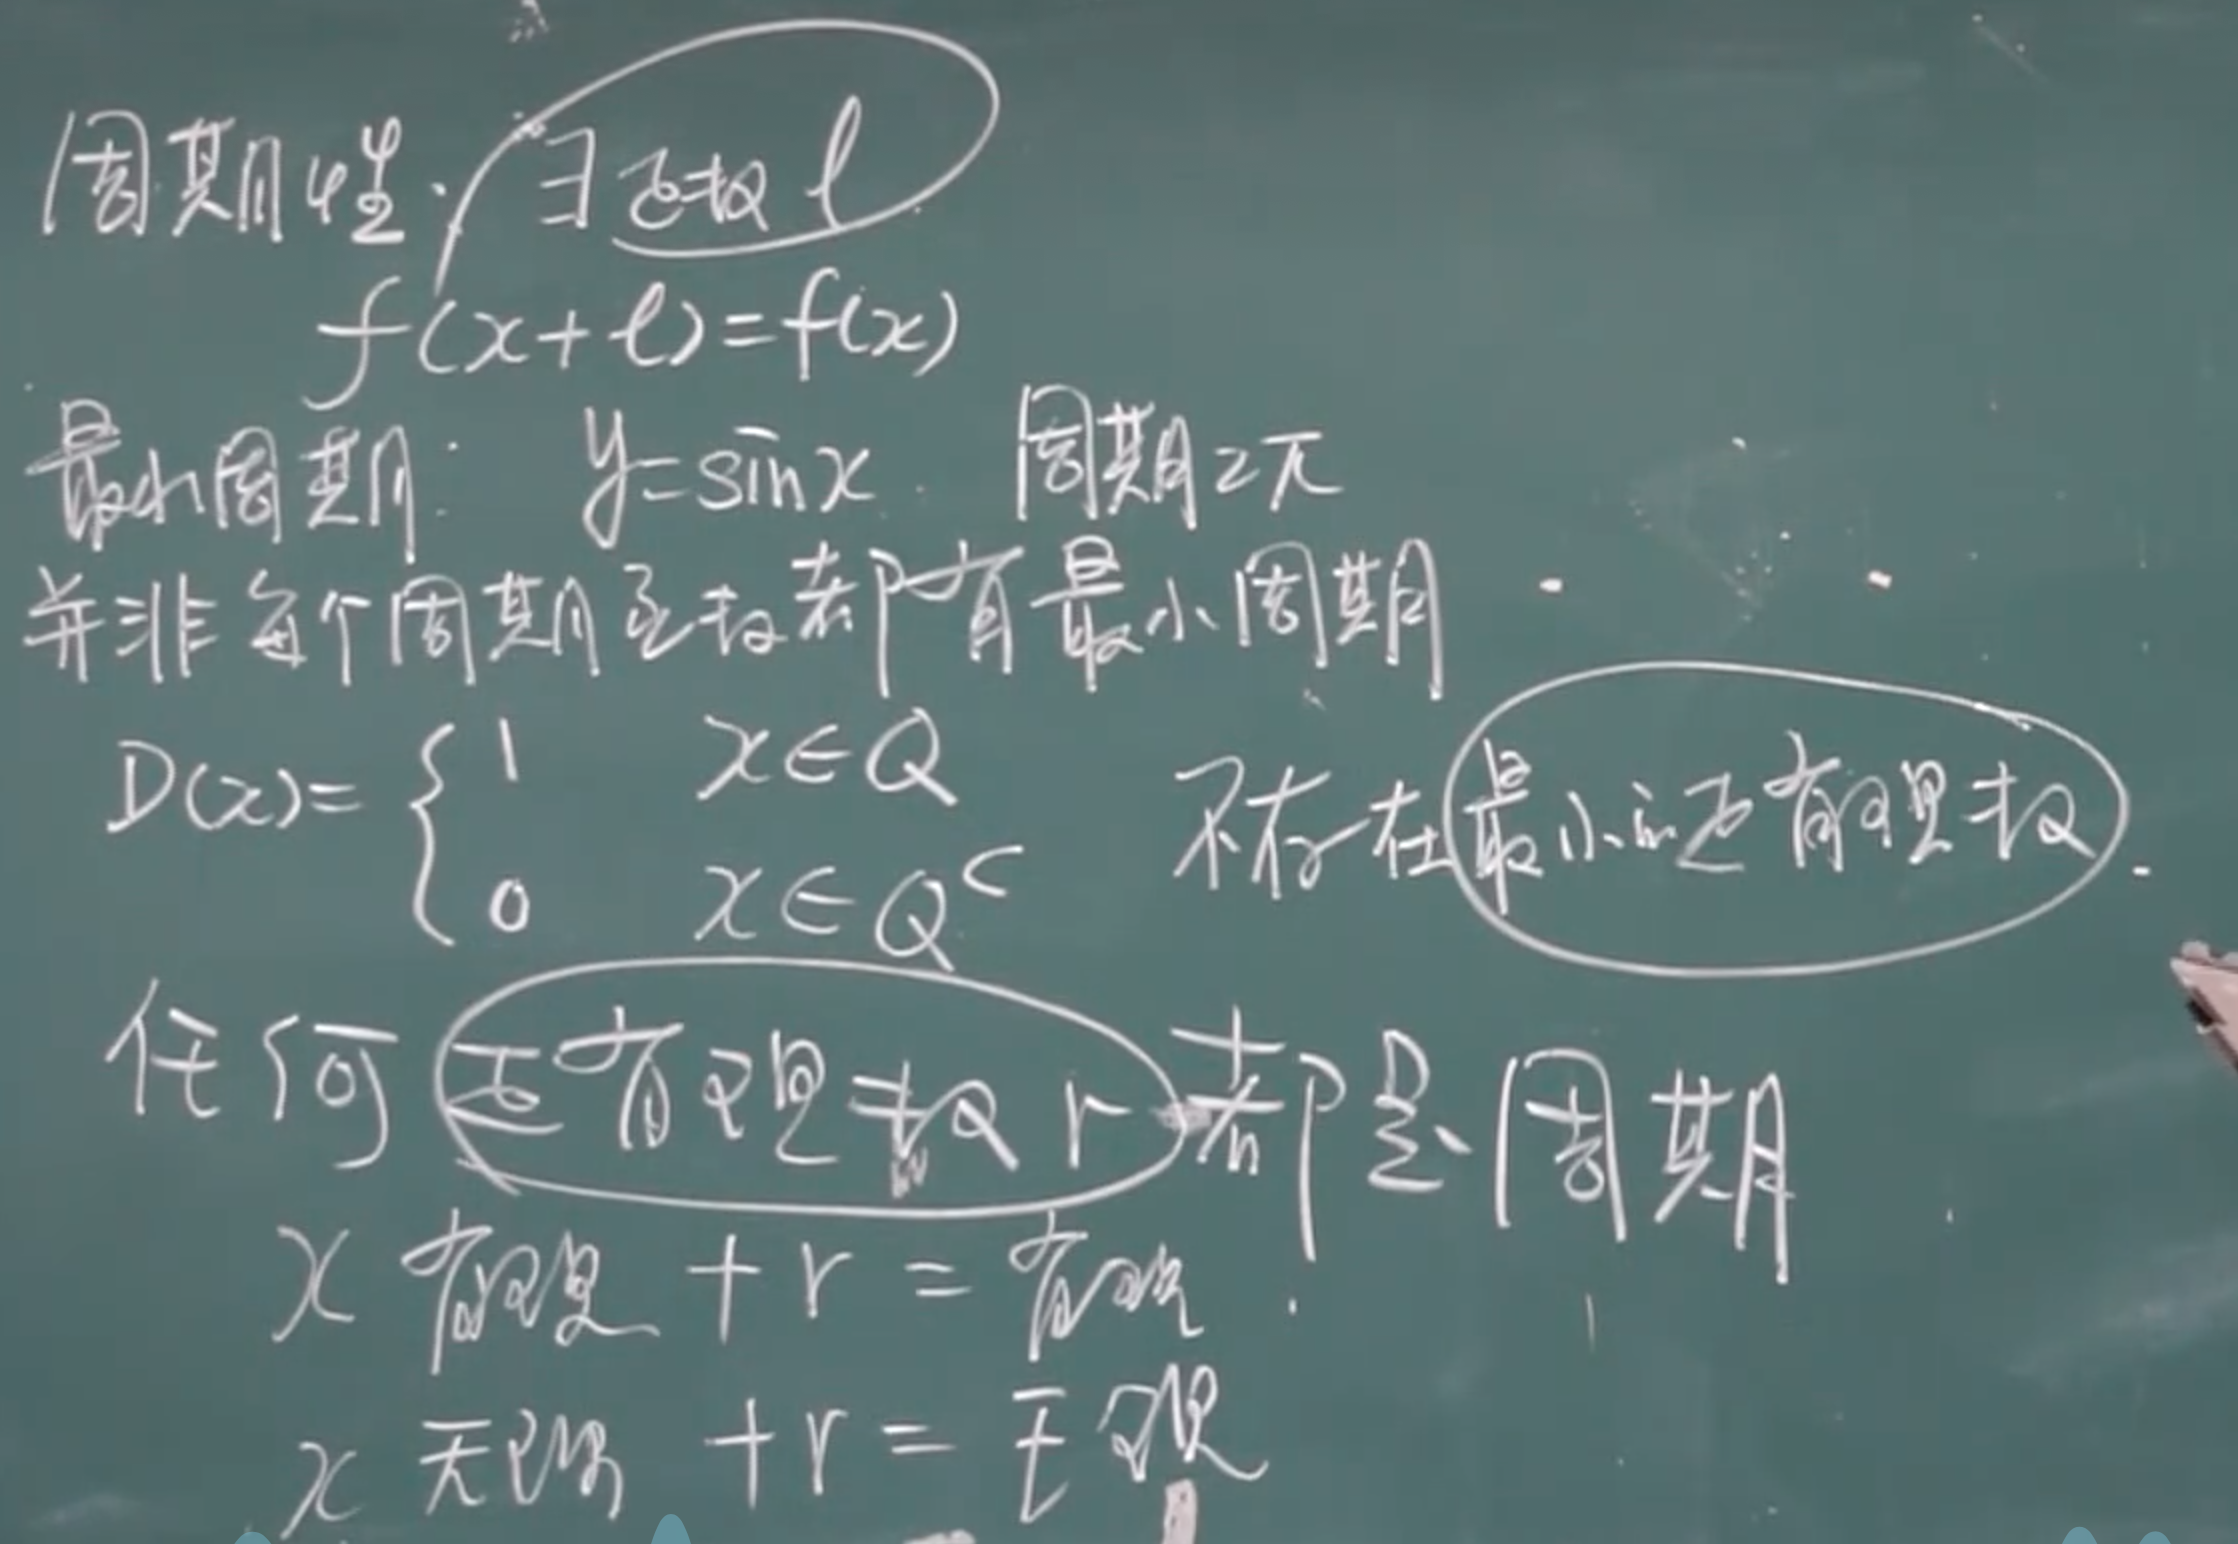 周期性: ∃正数 l
f(x+l)=f(x)
最小周期: y=sinx. 周期2π
并非每个周期函数都有最小周期
D(x)= { 1 x∈Q
0 x∈Qᶜ
不存在最小的正有理数.
任何正有理数 r 都是周期
x 有理 + r = 有理.
x 无理 + r = 无理